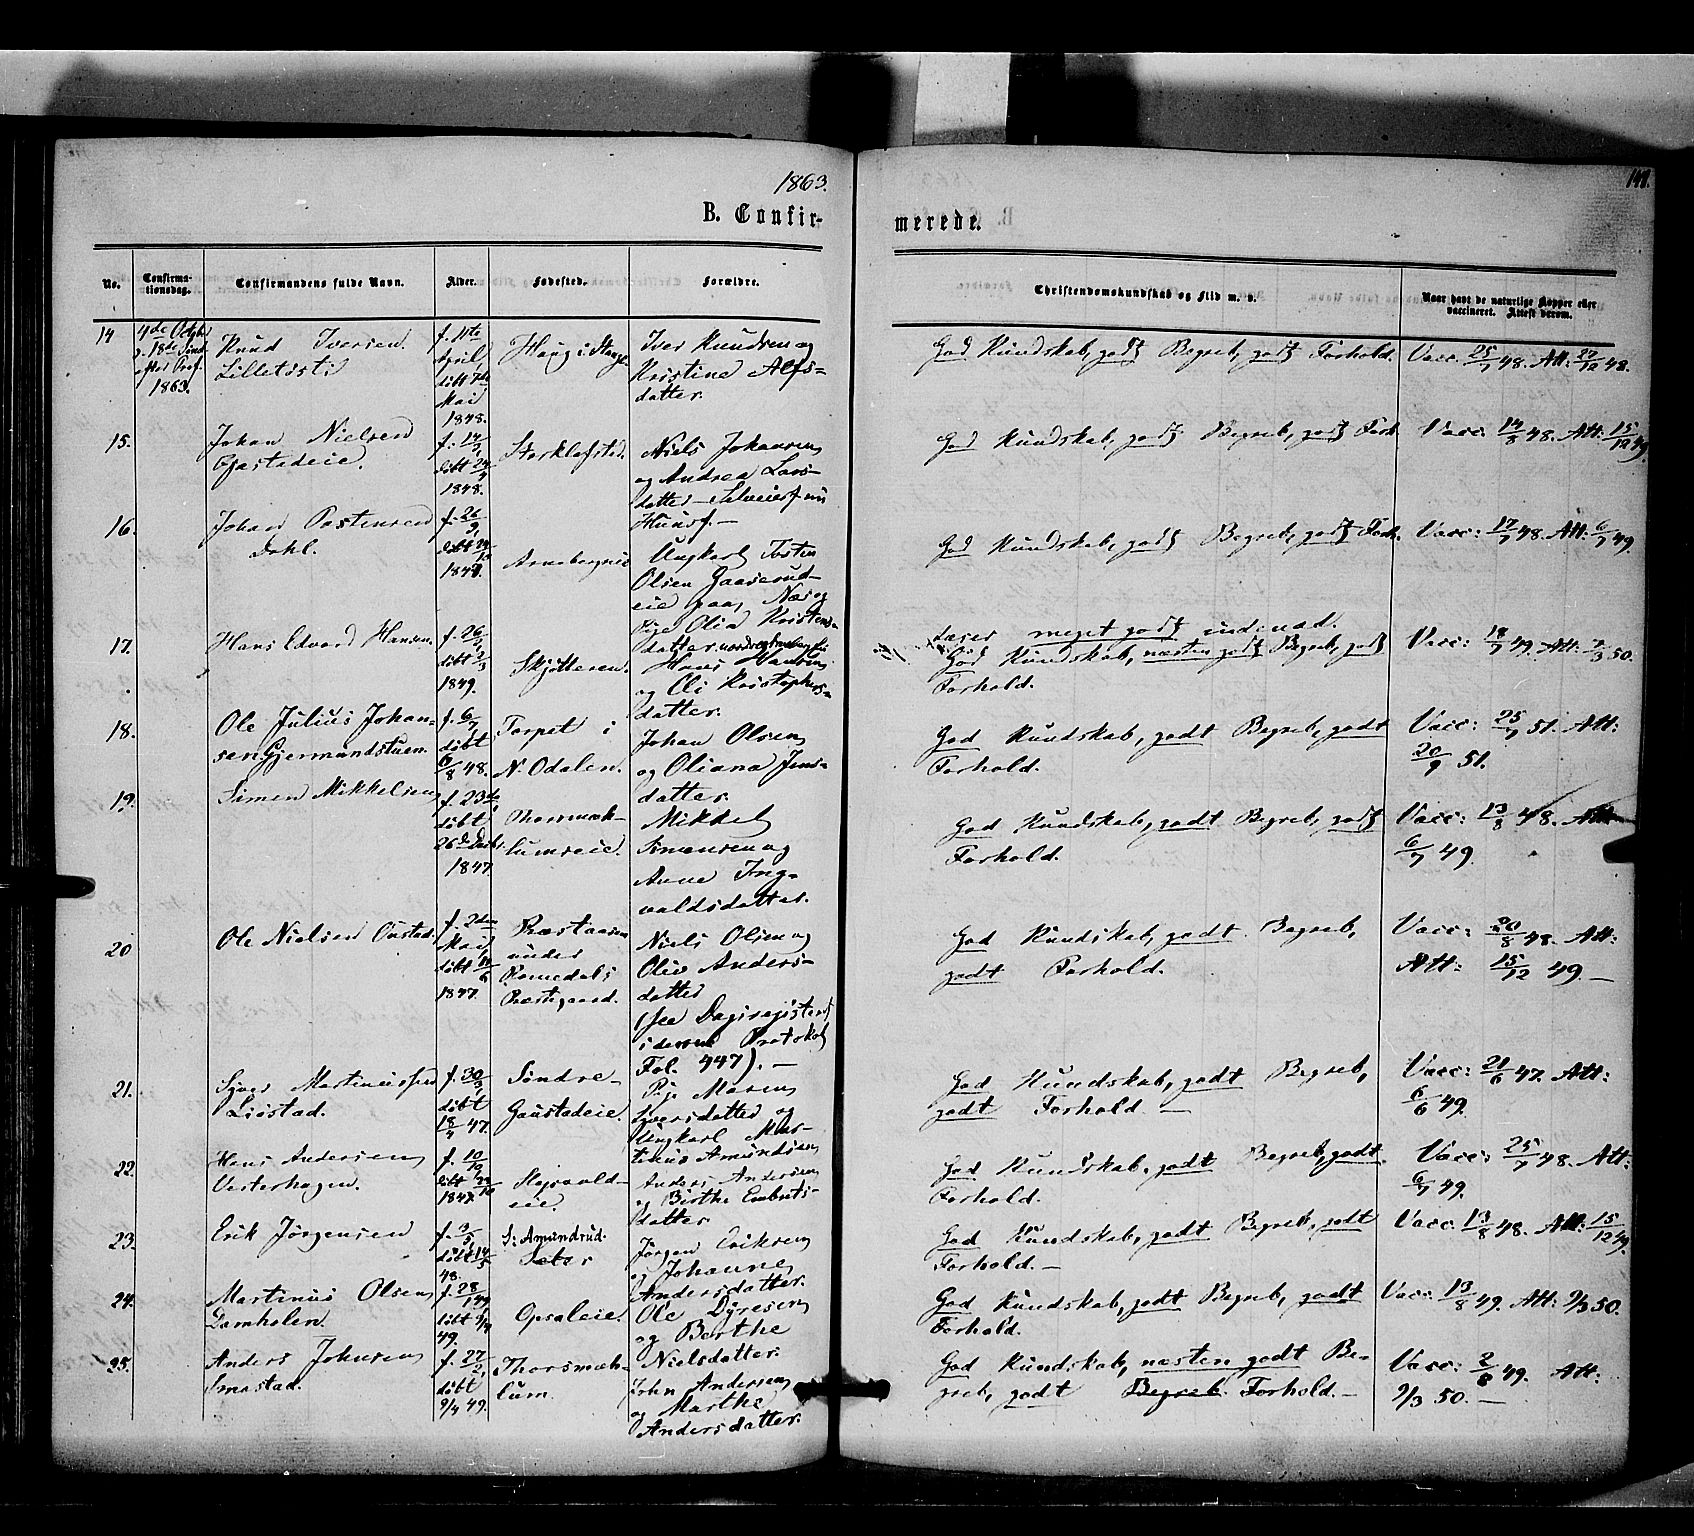 1863.
B. Confir-
merede.
141.
No.
Confirma-
tionsdag.
Confirmandens fulde Navn.
Alder.
Fødested.
Forældre.
Christendomskundskab og Flid m. v.
Naar havt de naturlige Kopper eller
vaccineret. Attest derom.
14
4de Octbr
18de Sønd.
efter Pref.
1863.
Knud Iversen
f. 11te
April
døbt 7de
Mai
1848.
Haug i
Iver Knudsen og
Kristine Alfs-
datter.
God Kundskab, godt Begreb, godt Forhold.
Vacc 25/7 48. Att: 27/12 48.
15.
Johan Nielsen
døbt 24/4
1848.
Storklefstad.
Niels Johansen
og Andrea Lars-
datter
God Kundskab, godt Begreb, godt Forh.
Vacc: 14/8 48. Att: 15/12 49.
16.
Johan Pastensen
Dahl.
f. 26/9,
Arneberg
Ungkarl
Olsen Gaaserud-
eie paa Næs og
Pige Olia Kristens-
datter
God Kundskab, godt Begreb, godt Forh.
Vacc: 17/7 48. Att: 6/7 49.
17.
Hans Edvard Hansen.
f. 26/1,
døbt 2/3
1849.
Skjøtteren.
Hans Hansen
og Oli Kristophers-
datter.
Læser meget godt indenad.
God Kundskab, næsten godt Begreb, godt
Forhold.
Vacc: 18/7 49. Att: 7/3 50.
18.
Ole Julius Johan-
sen Gjermundstuen.
f. 6/7
døbt
6/8 48.
Torpet i
N. Odalen.
Johan Olsen
og Oliana Jens-
datter.
God Kundskab, godt Begreb, godt
Forhold.
Vacc: 25/7 51. Att:
20/9 51.
19.
Simen Mikkelsen
f. 23de
døbt
26de Decbr.
1847
Thorsmæh-
lumseie.
Mikkel
Simensen og
Anne Ing-
valdsdatter.
God Kundskab, godt Begreb, godt
Forhold.
Vacc: 13/8 48. Att
6/7 49.
20
Ole Nielsen Onstad.
f. 2den
Mai
1847.
Præstaasen
under
Romedals
Præstgaard.
Niels Olsen og
Oliv Anders-
datter
(see Dagsregisteret
i denne Protokol
Fol. 447). —
God Kundskab, godt Begreb,
godt Forhold.
Vacc: 20/8 48. Att:
Att: 15/12 49 —
21.
Syver Martinussen
Liostad.
f. 30/3
døbt
18/4 47.
Søndre-
Gaustadeie.
Pige Maren
Syversdatter og
Ungkarl Mar-
tinus Amundsen
God Kundskab, godt Begreb,
godt Forhold. —
Vacc: 21/6 47. Att:
6/6 49.
22.
Hans Andersen
Vesterhagen.
f. 10/9,
1847.
eie.
Anders Andersen
og Birthe Embrets-
datter.
God Kundskab, godt Begreb, godt
Forhold.
Vacc: 25/7 48. Att:
6/7 49.
23.
Erik Jørgensen
f. 3/5,
døbt 14/5
48.
S: Amundrud.
Sæter
Jørgen Eriksen
og Johanne
Andersdatter.
God Kundskab, godt Begreb, godt
Forhold. —
Vacc. 13/8 48. Att: 15/12 49.
24.
Martinus Olsen
Damholen.
f. 28/1 49,
døbt
49.
Opsaleie.
Ole Dyresen
og Berthe
Nielsdatter.
God Kundskab, godt Begreb, godt
Forhold.
Vacc: 13/8 49. Att: 9/3 50.
25.
Anders Johnsen
Smestad.
f. 27/2,
døbt
9/4 49.
Thorsmæh-
lum.
John Andersen
og Marthe
Andersdatter.
God Kundskab, næsten godt Be-
greb, godt Begreb Forhold. —
Vacc: 2/8 49. Att:
9/3 50. —